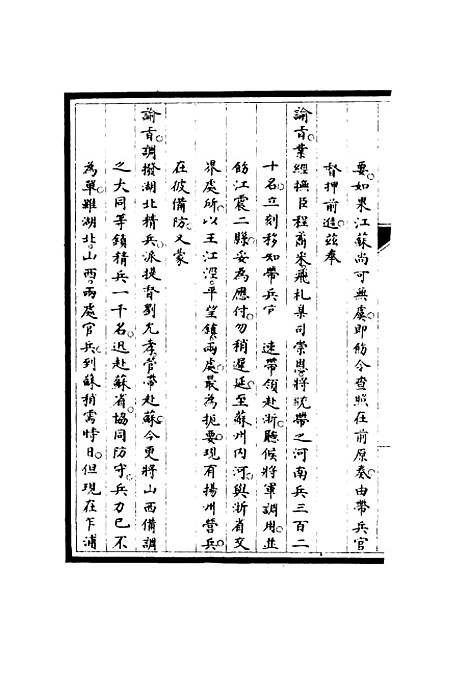 要。如果江蘇尚可無虞。即飭令查照在前原奏。由帶兵官
督押前進。茲奉
諭旨。業經撫臣程矞采飛札臬司崇恩。將統帶之河南兵三百二
十名。立刻移知帶兵官　速帶領赴浙。聽候將軍調用。並
飭江震二縣。妥為應付。勿稍遲延。至蘇州內河。與浙省交
界處所。以王江涇。平望鎮。兩處最為扼要。現有揚州營兵。
在彼備防。又蒙
諭旨。調撥湖北精兵。派提督劉允孝管帶赴蘇。今更將山西備調
之大同等鎮精兵一千名。迅赴蘇省。協同防守。兵力已不
為單。雖湖北。山西。兩處官兵。到蘇稍需時日。但現在乍浦